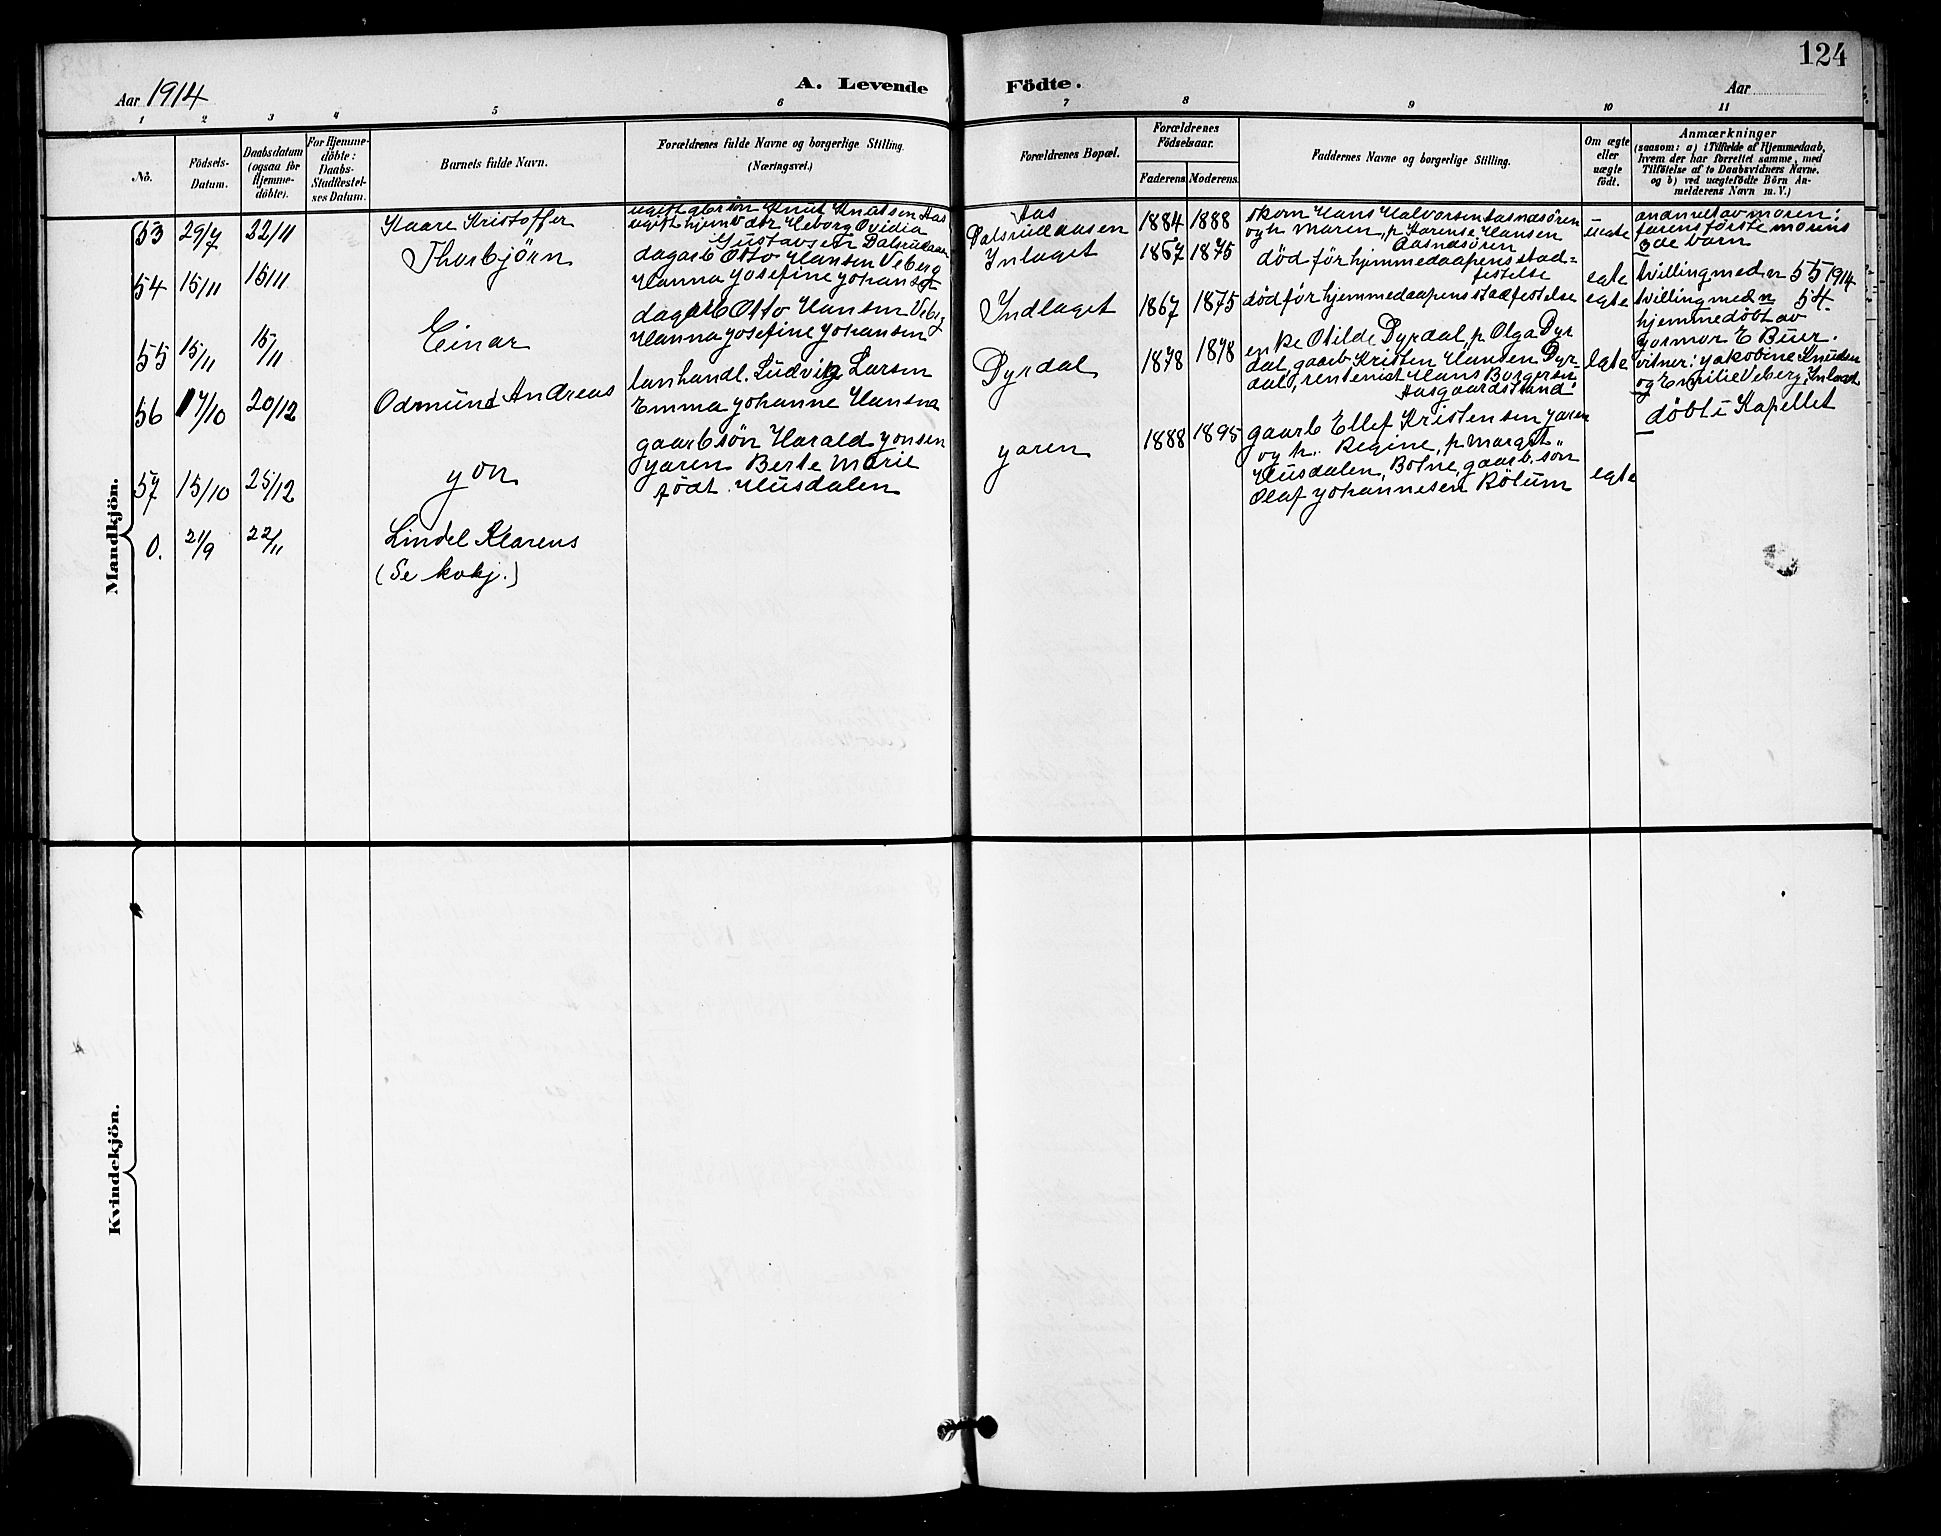 124
Aar 1914
A. Levende
Födte.
Aar
1 2 3 4 5 6 7 8 9 10 11
No.
Födsels-
Datum.
Daabsdatum
(ogsaa for
Hjemme-
döbte).
For Hjemme-
döbte:
Daabs-
Stadfæstel-
ses Datum.
Barnets fulde Navn.
Forældrenes fulde Navne og borgerlige Stilling.
(Næringsvei.)
Forældrenes Bopæl.
Forældrenes
Födselsaar.
Faderens.
Moderens.
Faddernes Navne og borgerlige Stilling.
Om ægte
eller
uægte
födt.
Anmærkninger
(saasom: a) i Tilfælde af Hjemmedaab,
hvem der har forrettet samme, med
Tilföielse af to Daabsvidners Navne.
og b) ved uægtefödte Börn An-
melderens Navn m. V.)
Mandkjön.
53 29/7 22/11 Kaare Kristoffer
ugift gbrsøn Knut Knutsen Aas
ugift hjemv dtr Heborg Ovidia
Gustavsen Dalsrudaasen
Aas
Dalsrudaasen
1884 1888
skom Hans Halvorsen Aasnasøren
og h. Maren, p Karense Hansen
Aasnasøren
uegte
anmeldt av moren:
farens første morens
2de barn
54 15/11 15/11 Thorbjörn
dagarb Otto Hansen Veberg
Hanna Josefine Johansen
Inlaget
1867 1875
død før hjemmedaapens stad=
festelse
egte
tvilling med n 55 1914
55 15/11 15/11 Einar
dagarb Otto Hansen Veberg
Hanna Josefine Johansen
Indlaget
1867 1875
død før hjemmedaapens stadfestelse
egte
tvilling med n 54.
hjemmedöbt av
Josmor E Buer.
vitner: Jakobine Knudsen
og Emilie Veberg, Inlaget
56 17/10 20/12 Odmund Andreas
lanhandl. Ludvig Larsen
Emma Johanne Hansen
Dyrdal
1878 1878
enke Otilde Dyrdal, p Olga Dyr
dal, gaarb Kristen Hansen Dyr-
dal, rentenist Hans Borgersen
Aasgaardstrand.
egte
döbt i Kapellet
57 15/10 25/12 Jon
gaarbsøn Harald Jonsen
Jaren Berte Marie
født Husdalen
Jaren
1888 1895
gaarb Ellef Kristensen Jaren
og h. Regine, p Margit
Husdalen, Botne, gaarb. søn
Olaf Johannesen Rølum
egte
0. 21/9 22/11 Lindel Klarens
(Se kvkj.)
Kvindekjön.